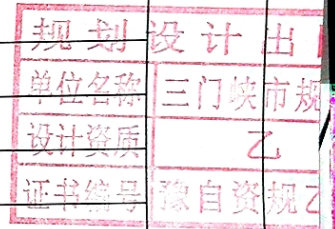 规划设计出
单位名称 三门峡市规
设计资质 乙
证书编号 豫自资规乙